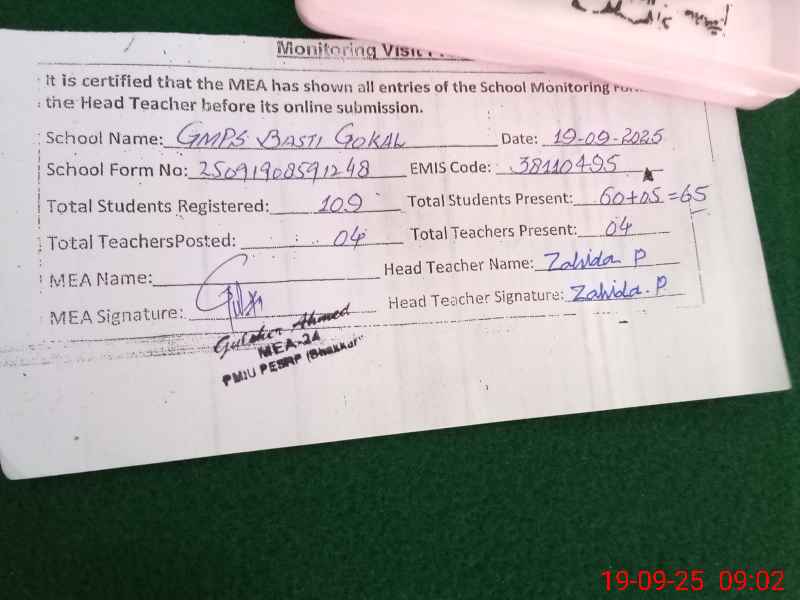 Monitoring Visit
It is certified that the MEA has shown all entries of the School Monitoring
the Head Teacher before its online submission.
School Name: GMPS BASTI GOKAL Date: 19-09-2025
School Form No: 25091908591248 EMIS Code: 38110495
Total Students Registered: 109 Total Students Present: 60+05=65
Total TeachersPosted: 04 Total Teachers Present: 04
MEA Name: Head Teacher Name: Zahida P
MEA Signature: Head Teacher Signature: Zahida. P
Ahmed
MEA-24
PMIU PESRP (Bhakkar)
19-09-25 09:02